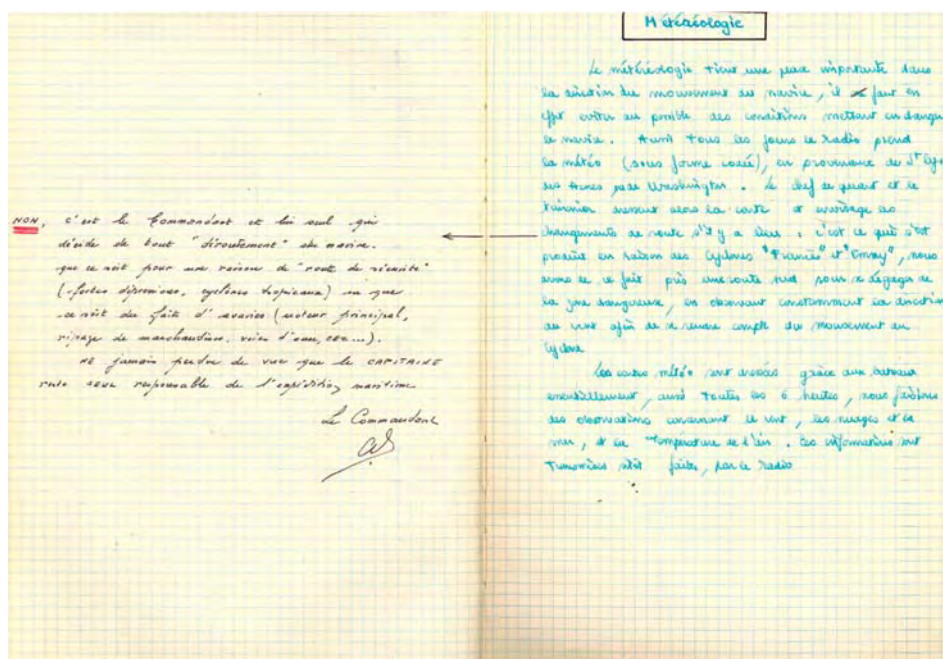 NON, c'est le Commandant et lui seul qui
décide de tout "déroutement" du navire.
que ce soit pour une raison de "route de sécurité"
(fortes dépressions, cyclones tropicaux) ou que
ce soit du fait d'avaries (moteur principal,
ripage de marchandises, voies d'eau, etc...).
NE jamais perdre de vue que le CAPITAINE
reste seul responsable de l'expédition maritime
Le Commandant
Météréologie
La météréologie tient une place importante dans
la direction du mouvement du navire, il faut en
effet eviter au possible des conditions mettant en danger
le navire. Aussi tous les jours le radio prend
la météo (sous forme codée), en provenance de St
les Acres, de Washington. Le chef de quart et le
dressent alors la carte et envisage les
changements de route s'il y a lieu : c'est ce qui s'est
produit en raison des cyclones "Frances" et "Emmy", nous
avons de ce fait pris une route sud pour se dégager de
la zone dangereuse, en observant constamment la direction
du vent afin de se rendre compte du mouvement du
cyclone
Les cartes météo sont dressées grâce aux
, aussi toutes les 6 heures, nous faisons
des observations concernant le vent, les nuages et la
mer, et la température de l'air. Ces informations sont
transmises sitôt faites, par le radio